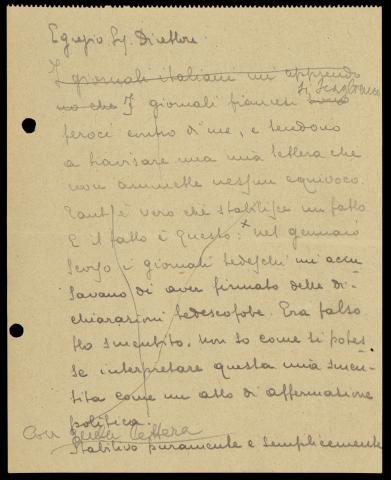 Egregio Sg. Direttore.
I giornali italiani mi apprendo
no che I giornali francesi si scagliano
feroci contro di me, e tendono
a travisare una mia lettera che
non ammette nessun equivoco.
Tant'è vero che stabilisce un fatto
E il fatto è questo: x nel gennaio
scorso i giornali tedeschi mi accu
savano di aver firmato delle di
chiarazioni tedescofobe. Era falso
Ho smentito, non so come si potes
se interpretare questa mia smen
tita come un atto di affermazione
politica.
Con quella lettera
Stabilivo puramente e semplicemente